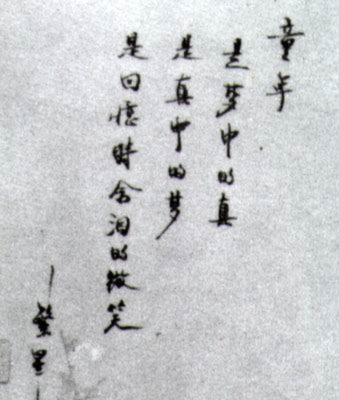 童年
是梦中的真
是真中的梦
是回憶時含泪的微笑
——繁星——